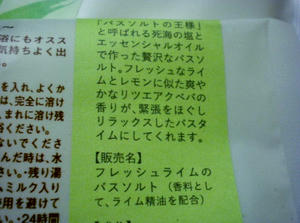 『バスソルトの王様』
と呼ばれる死海の塩と
エッセンシャルオイル
で作った贅沢なバスソ
ルト。フレッシュなライ
ムとレモンに似た爽や
かなリツエアクベバの
香りが、緊張をほぐし
リラックスしたバスタ
イムにしてくれます。
【販売名】
フレッシュライムの
バスソルト（香料とし
て、ライム精油を配合）
浴にもオスス
気持ちよく出
を入れ、よくか
は、完全に溶け
、まれに溶け残
ください。
ないでくださ
んだ時は、水
さい。・残り湯
、ミルク入り
使用を避けて
い。・24時間